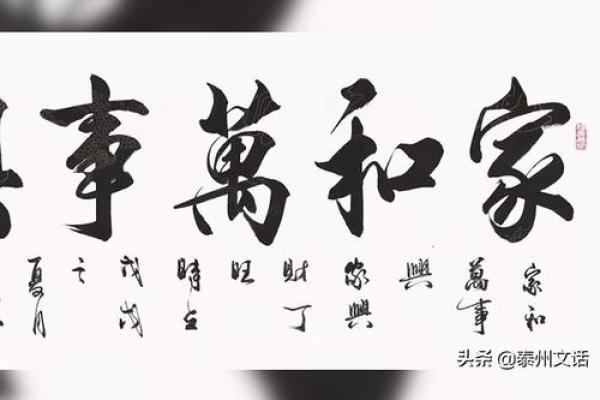 家和萬事
家和
萬事
興
家興
財丁
旺
時在
戊戌
之
夏月
头条 @泰州文话